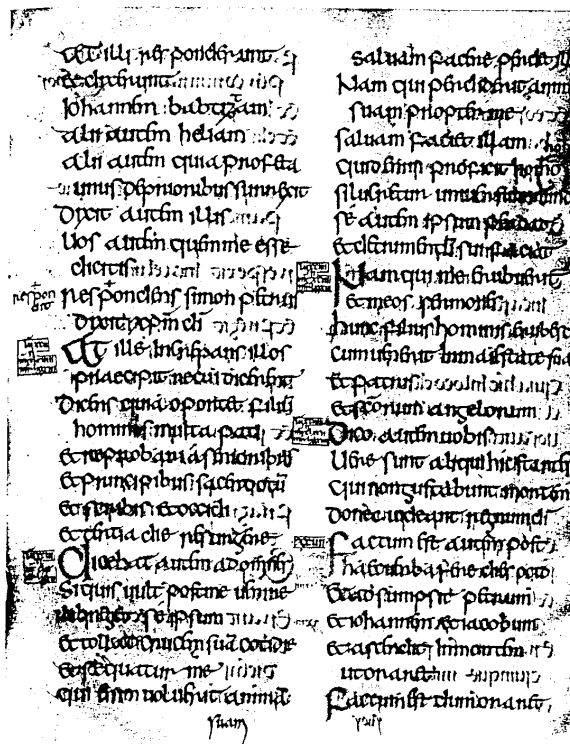 at illi responderunt
et dixerunt
iohannem babtizam
alii autem heliam
alii autem quia profeta
unus de prioribus surrexit
dixit autem illis
uos autem quem me esse
dicitis
respondens simon petrus
dixit xpm di
at ille increpans illos
praecepit ne cui dicerent
dicens quia oportet filium
hominis multa pati
et reprobari a senioribus
et principibus sacerdotū
et scribis et occidi
et tertia die resurgere
dicebat autem ad omnes
si quis uult post me uenire
abneget se ipsum
et tollat crucem suā cotidie
et sequatur me
qui enim uoluerit animā
suam
saluam facere perdet ill
nam qui perdiderit anim
suam propter me
saluam faciet illam
quid enim proficit homo
si lucretur uniuersum
se autem ipsum perdat
et detrimentū sui faciat
nam qui me erubuerit
et meos sermones
hunc filius hominis erubesc
cum uenerit in maiestate sua
et patris
et scōrum angelorum
dico autem uobis
uere sunt aliqui hic stantes
qui non gustabunt mortem
donec uideant regnum di
factum est autem post
haec uerba fere dies octo
et adsumpsit petrum
et iohannem et iacobum
et ascendit in montem
ut oraret
factum est dum oraret